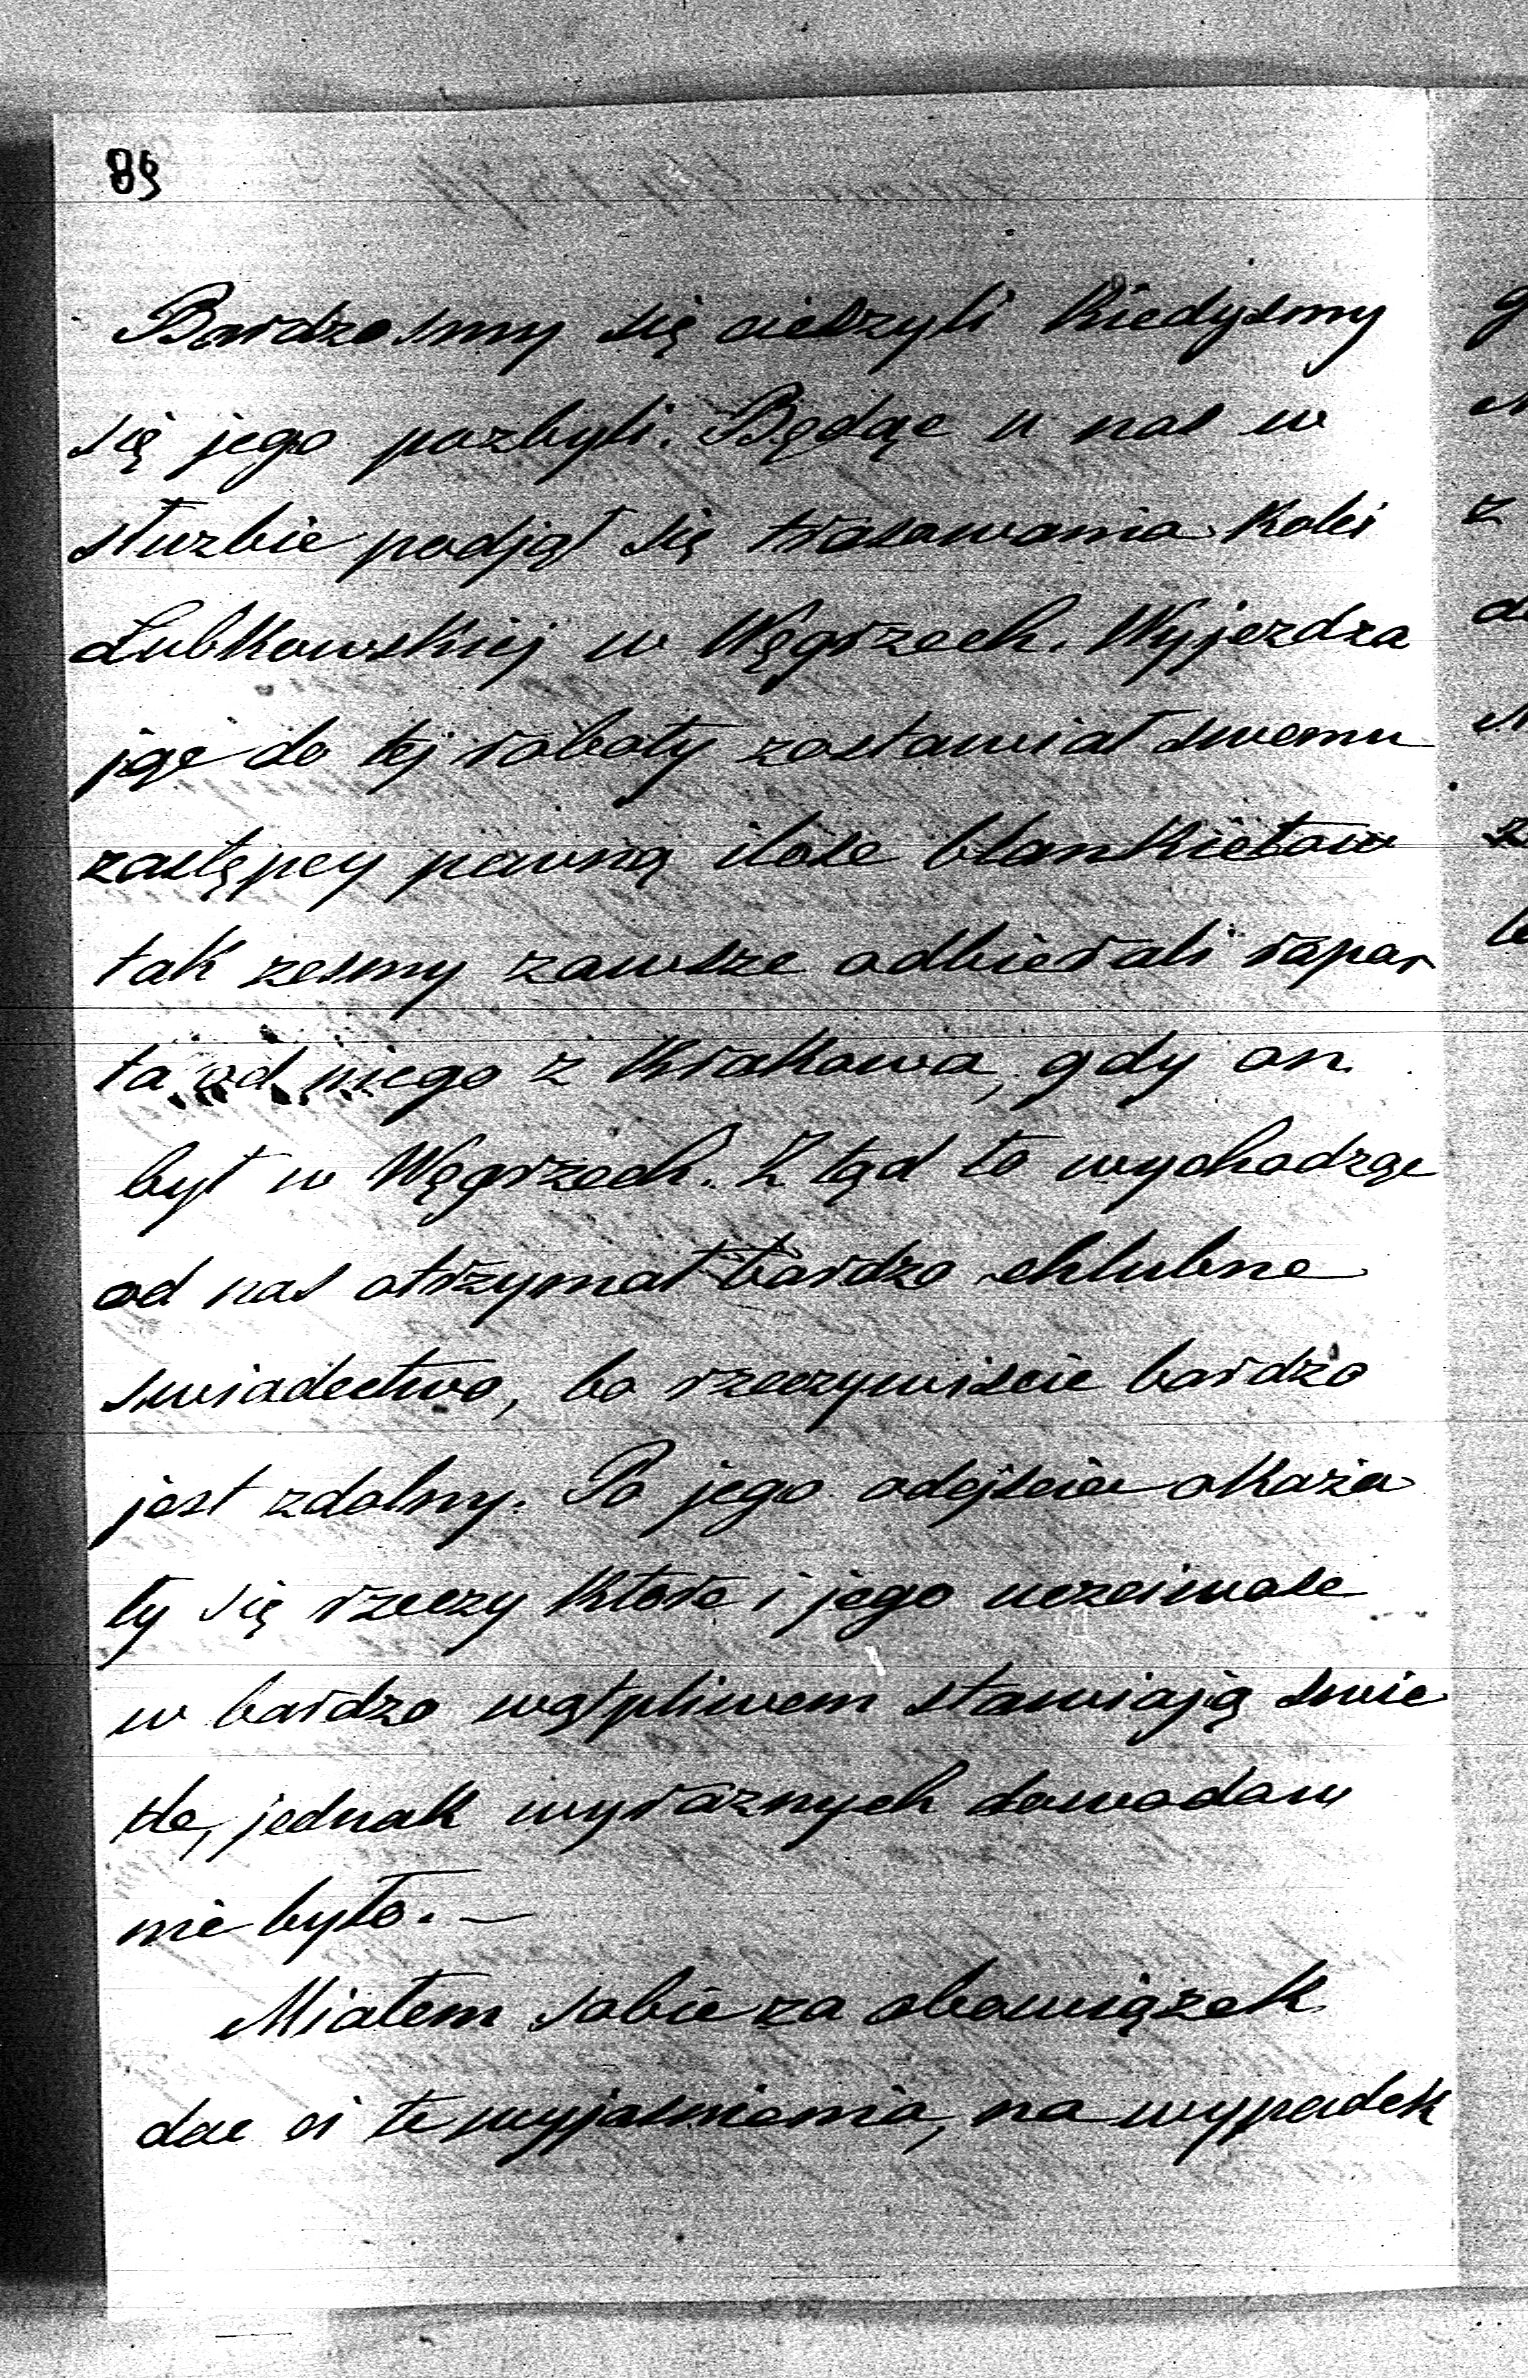 89
Bardzosmy się cieszyli kiedysmy
się jego pozbyli. Będąc u nas w
służbie podjął się trasowania kolei
Łubkowskiej w Węgrzech. Wyjezdza
jąc do tej roboty zostawiał swemu
zastępcy pewną ilosc blankietow
tak zesmy zawsze odbierali rapor
ta od niego z Krakowa, gdy on
był w Węgrzech. Z tąd to wychodząc
od nas otrzymał bardzo chlubne
swiadectwo, bo rzeczywiscie bardzo
jest zdolny. Po jego odejsciu okaza
ły się rzeczy ktore i jego uczciwosc
w bardzo wątpliwem stawiają swie
tle, jednak wyraznych dowodow
nie było. —
Miałem sobie za obowiązek
dac ci te wyjasnienia, na wypadek